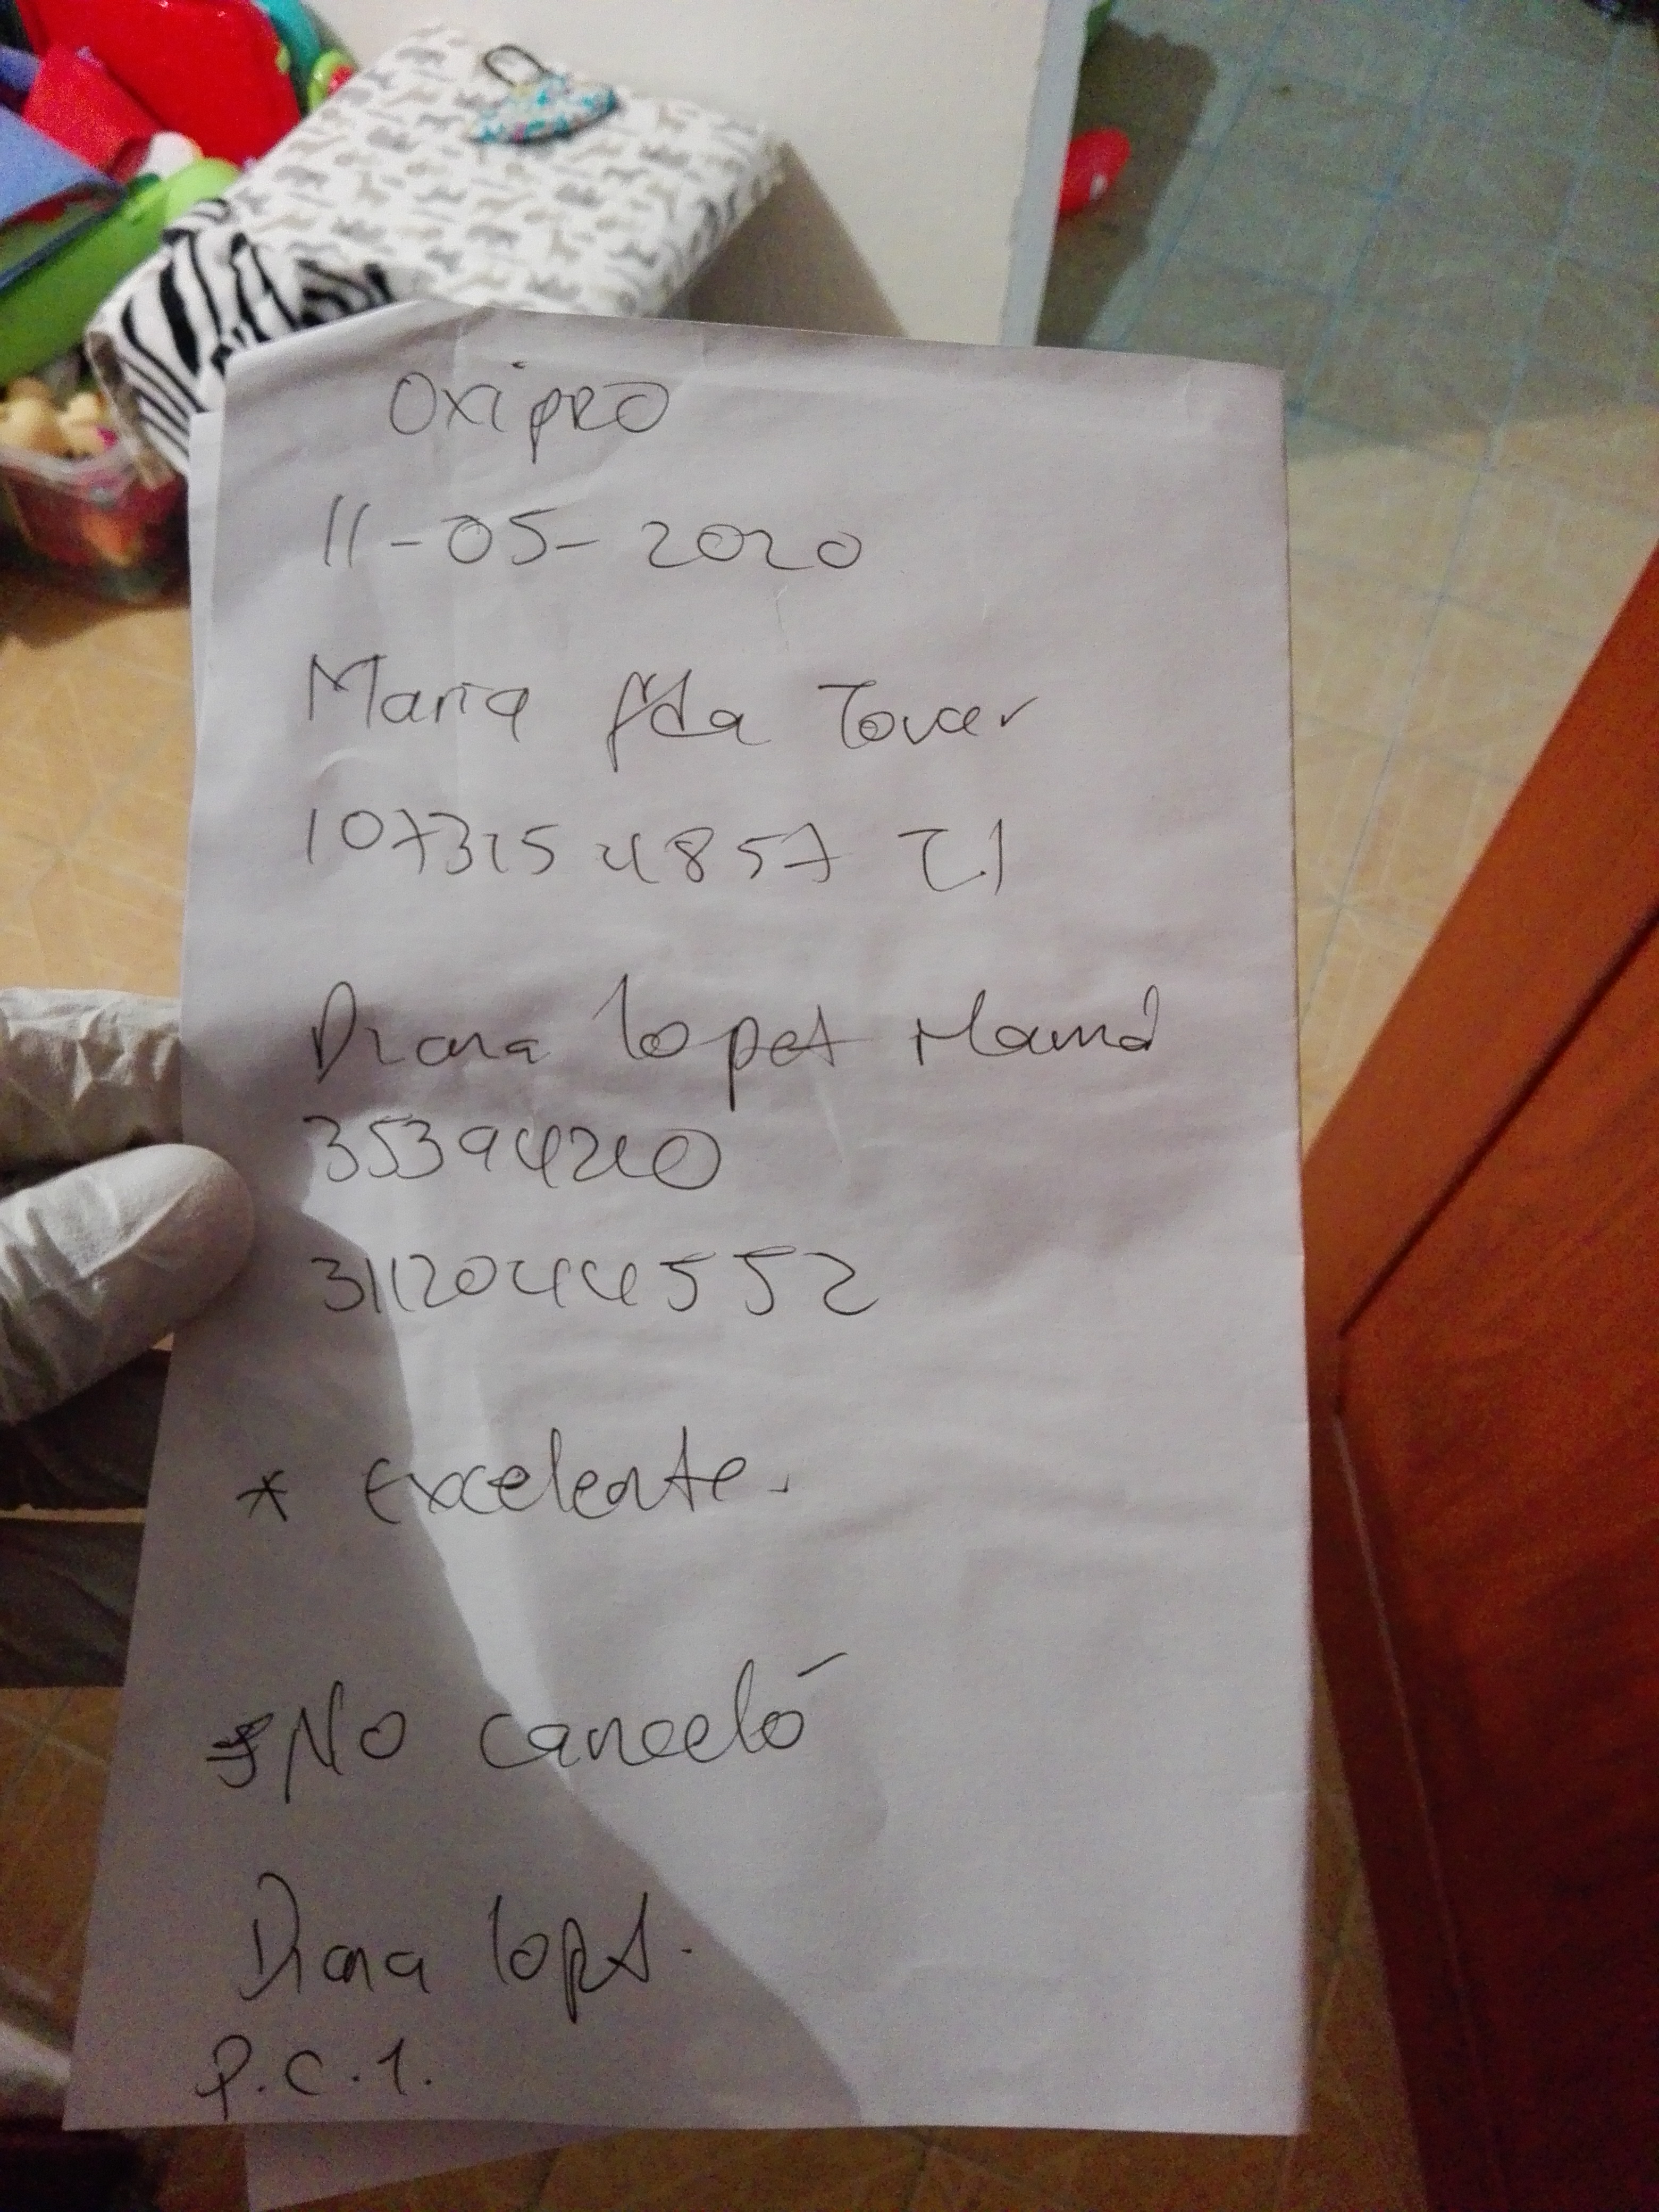 Oxipro
11-05-2020
Maria fda Tovar
1073254857 TI
Diana lopez Mamá
35394240
3112044552
* excelente.
* No canceló
Diana lopez.
P.C.1.